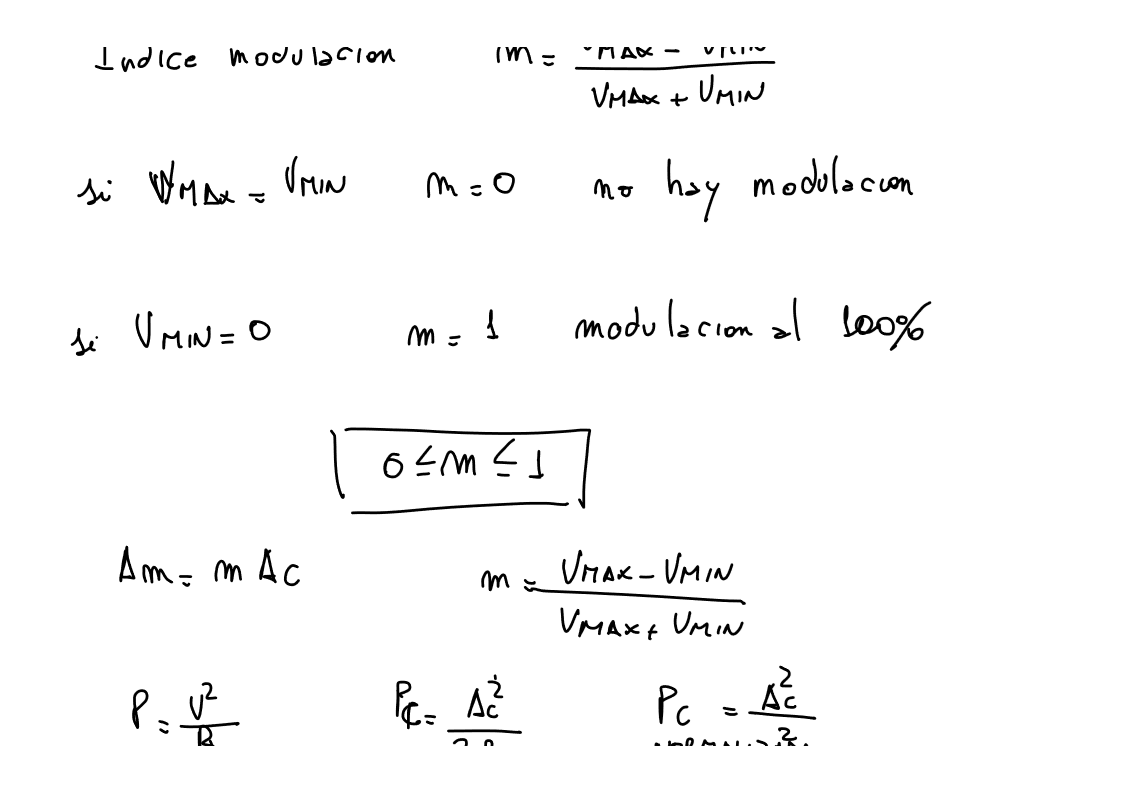 Indice modulacion m = VMAX - VMIN / VMAX + VMIN
si VMAX = VMIN m = 0 no hay modulacion
si VMIN = 0 m = 1 modulacion al 100%
0 ≤ m ≤ 1
Am = m Ac m = VMAX - VMIN / VMAX + VMIN
P = V² / R Pc = Ac² / 2R Pc = Ac² / 2